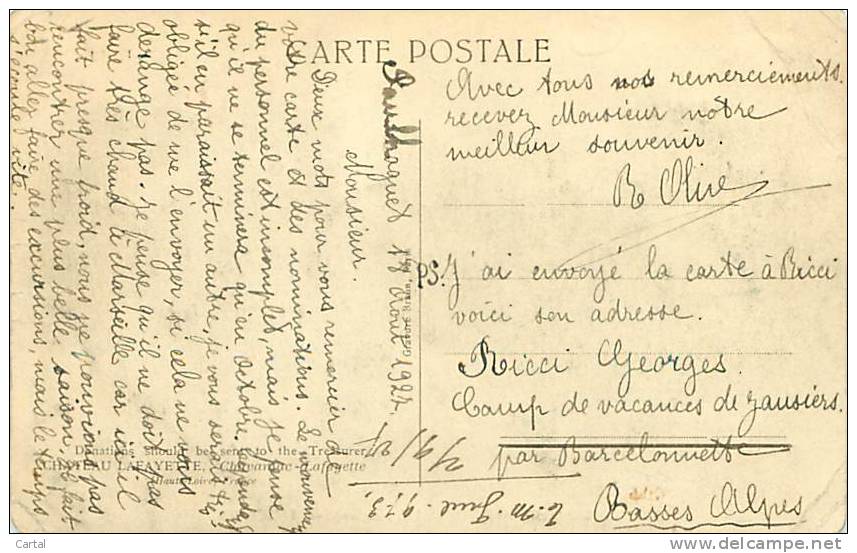 CARTE POSTALE
Paulhaguet 18 Août 1927.
Monsieur.
Deux mots pour vous remercier de
votre carte et des nominations. Le mouvement
du personnel est incomplet, mais je pense
qu'il ne se terminera qu'en Octobre.
s'il en paraissait un autre, je vous serais très
obligée de me l'envoyer, si cela ne vous
dérange pas. Je pense qu'il ne doit pas
faire très chaud à Marseille car ici il
fait presque froid, nous ne pouvions pas
rencontrer une plus belle saison. Il fait
bon aller faire des excursions, mais le temps
s'écoule vite.
Avec tous nos remerciements
recevez Monsieur notre
meilleur souvenir.
R Olive
PS. J'ai envoyé la carte à Ricci
voici son adresse.
Ricci Georges.
Camp de vacances de Jausiers.
par Barcelonnette
Basses Alpes
Donations should be sent to the Treasurer
CHÂTEAU LAFAYETTE, Chavaniac-Lafayette
Haute-Loire, France
Cartal
delcampe.net